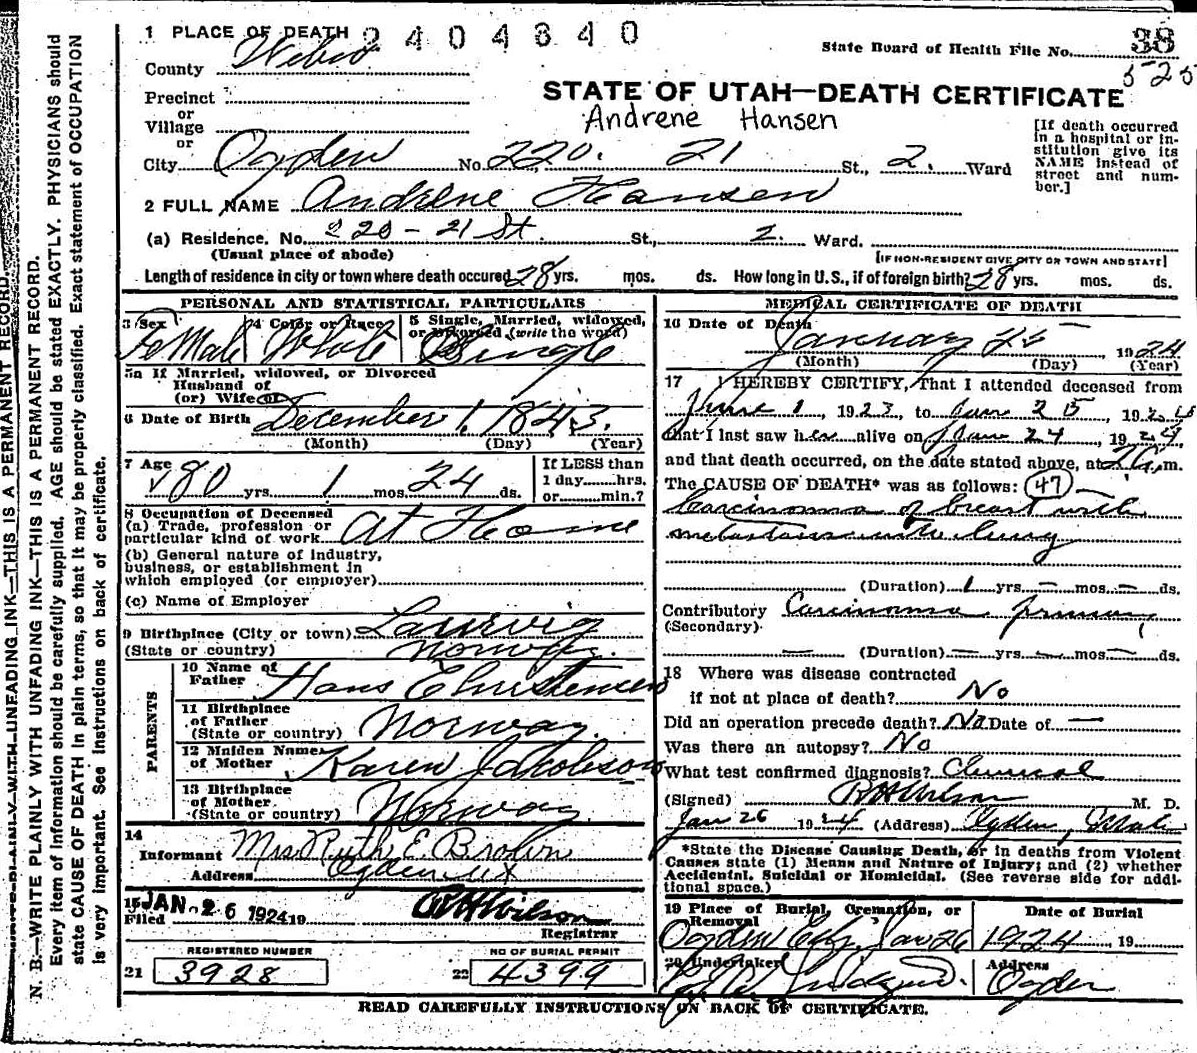 1 PLACE OF DEATH 2404340
State Board of Health File No. 38
County Weber
525
Precinct
STATE OF UTAH—DEATH CERTIFICATE
or
Village
Andrene Hansen
or
City Ogden No. 220. 21 St., 2. Ward
[If death occurred
in a hospital or in-
stitution give its
NAME instead of
street and num-
ber.]
2 FULL NAME Andrene Hansen
(a) Residence. No. 220 - 21 St. St., 2. Ward.
(Usual place of abode)
[IF NON-RESIDENT GIVE CITY OR TOWN AND STATE]
Length of residence in city or town where death occured 28 yrs. mos. ds. How long in U.S., if of foreign birth? 28 yrs. mos. ds.
PERSONAL AND STATISTICAL PARTICULARS
3 Sex 4 Color or Race 5 Single, Married, widowed,
or Divorced (write the word)
FeMale White Single
5a If Married, widowed, or Divorced
Husband of
(or) Wife of
6 Date of Birth December 1, 1843.
(Month) (Day) (Year)
7 Age 80 yrs. 1 mos. 24 ds.
If LESS than
1 day......hrs.
or......min.?
8 Occupation of Deceased
(a) Trade, profession or
particular kind of work At Home
(b) General nature of industry,
business, or establishment in
which employed (or employer)
(c) Name of Employer
9 Birthplace (City or town) Laurvig
(State or country) Norway.
PARENTS
10 Name of
Father Hans Christensen
11 Birthplace
of Father
(State or country) Norway.
12 Maiden Name
of Mother Karen Jakobson
13 Birthplace
of Mother
(State or country) Norway
14
Informant Mrs Ruth E. Brown
Address Ogden Ut
15 JAN 26 1924 19
Filed R H Wilson
Registrar
REGISTERED NUMBER NO OF BURIAL PERMIT
21 3928 22 4399
MEDICAL CERTIFICATE OF DEATH
16 Date of Death
January 25 1924
(Month) (Day) (Year)
17 I HEREBY CERTIFY, That I attended deceased from
June 1, 1923, to Jan 25, 1924
that I last saw her alive on Jan 24, 1924,
and that death occurred, on the date stated above, at m.
The CAUSE OF DEATH* was as follows: 47
Carcinoma of breast with
(Duration) 1 yrs. — mos. — ds.
Contributory Carcinoma primary
(Secondary)
— (Duration) — yrs. — mos. — ds.
18 Where was disease contracted
if not at place of death? No
Did an operation precede death? No Date of —
Was there an autopsy? No
What test confirmed diagnosis? Clinical
(Signed) R H Wilson M. D.
Jan 26 1924 (Address) Ogden, Utah
*State the Disease Causing Death, or in deaths from Violent
Causes state (1) Means and Nature of Injury; and (2) whether
Accidental, Suicidal or Homicidal. (See reverse side for addi-
tional space.)
19 Place of Burial, Cremation, or
Removal
Date of Burial
Ogden City Jan 26 1924, 19
20 Undertaker Address
Ogden
READ CAREFULLY INSTRUCTIONS ON BACK OF CERTIFICATE.
WRITE PLAINLY WITH UNFADING INK—THIS IS A PERMANENT RECORD.
N. B.—WRITE PLAINLY WITH UNFADING INK—THIS IS A PERMANENT RECORD.
Every item of information should be carefully supplied. AGE should be stated EXACTLY. PHYSICIANS should
state CAUSE OF DEATH in plain terms, so that it may be properly classified. Exact statement of OCCUPATION
is very important. See instructions on back of certificate.